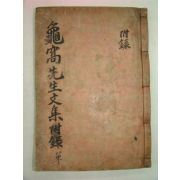 附錄
龜窩先生文集附錄